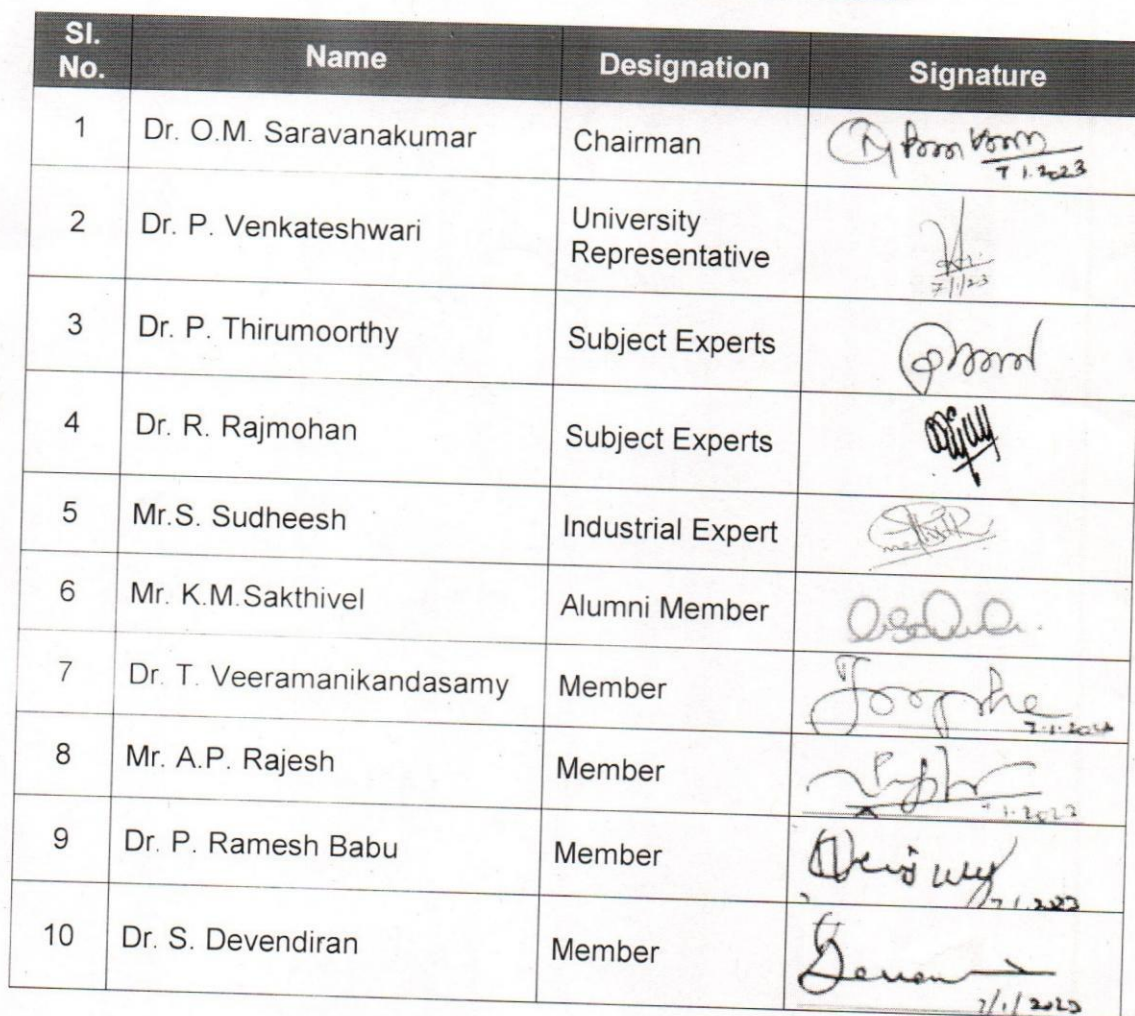 Sl. No. Name Designation Signature
1 Dr. O.M. Saravanakumar Chairman
7.1.2023
2 Dr. P. Venkateshwari University Representative
7/1/23
3 Dr. P. Thirumoorthy Subject Experts
4 Dr. R. Rajmohan Subject Experts
5 Mr.S. Sudheesh Industrial Expert
6 Mr. K.M.Sakthivel Alumni Member
7 Dr. T. Veeramanikandasamy Member
8 Mr. A.P. Rajesh Member
9 Dr. P. Ramesh Babu Member
7.1.2023
10 Dr. S. Devendiran Member
7/1/2023